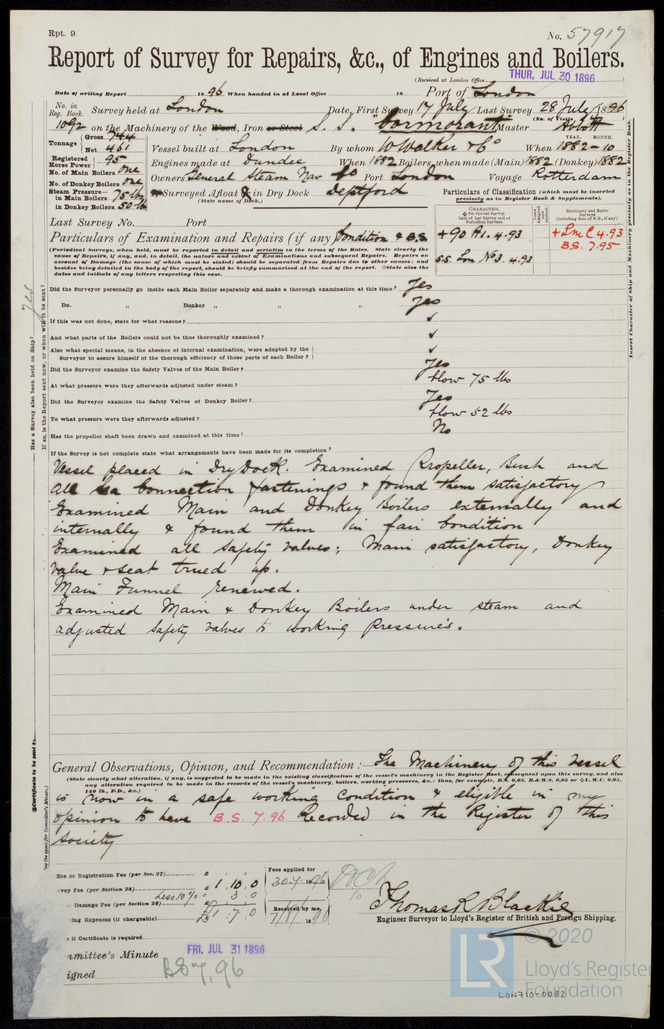 Rpt. 9.
No. 57917
Report of Survey for Repairs, &c., of Engines and Boilers.
(Received at London Office
THUR, JUL 30 1896
Date of writing Report 1896 When handed in at Local Office 18 Port of London
No. in Reg. Book. Survey held at London Date, First Survey 17 July Last Survey 28 July 1896
1092 on the Machinery of the Wood, Iron or Steel S. S. "Cormorant" Master Abbott
(No. of Visits)
Tonnage Gross 744 Net 461
Vessel built at London By whom W. Walker & Co When 1882-10
YEAR. MONTH.
Registered Horse Power 95
Engines made at Dundee When 1882 Boilers, when made (Main) 1882 (Donkey) 1882
No. of Main Boilers one
No. of Donkey Boilers one
Owners General Steam Nav Co Port London Voyage Rotterdam
Steam Pressure— in Main Boilers 75 lb
in Donkey Boilers 50 lb
Surveyed Afloat & in Dry Dock Deptford
(State name of Dock.)
Particulars of Classification (which must be inserted precisely as in Register Book & Supplements).
CHARACTER.
Machinery and Boiler Surveys
Last Survey No. Port
Particulars of Examination and Repairs (if any) Condition & B.S.
+90 A1. 4.93
+LMC 4.93
B.S. 7.95
SS. Lon No 3. 4.93
(Periodical Surveys, when held, must be reported in detail and seriatim in the terms of the Rules. State clearly the cause of Repairs, if any, and, in detail, the nature and extent of Examinations and subsequent Repairs. Repairs on account of Damage (the cause of which must be stated) should be separated from Repairs due to other causes; and besides being detailed in the body of the report, should be briefly summarised at the end of the report. State also the dates and initials of any letters respecting this case.
Did the Surveyor personally go inside each Main Boiler separately and make a thorough examination at this time? Yes
Do. " Donkey " " " " Yes
If this was not done, state for what reasons?
And what parts of the Boilers could not be thus thoroughly examined?
Also what special means, in the absence of internal examination, were adopted by the Surveyor to assure himself of the thorough efficiency of those parts of each Boiler?
Did the Surveyor examine the Safety Valves of the Main Boiler? Yes
At what pressure were they afterwards adjusted under steam? blow 75 lbs
Did the Surveyor examine the Safety Valves of Donkey Boiler? Yes
To what pressure were they afterwards adjusted? blow 52 lbs
Has the propeller shaft been drawn and examined at this time? No
If the Survey is not complete state what arrangements have been made for its completion?
Vessel placed in Dry Dock. Examined Propeller, Bush and
all sea connection fastenings & found them satisfactory
Examined Main and Donkey Boilers externally and
internally & found them in fair condition
Examined all Safety valves; Main satisfactory, Donkey
valve & seat trued up.
Main Funnel renewed.
Examined Main & Donkey Boilers under steam and
adjusted Safety valves to working Pressures.
General Observations, Opinion, and Recommendation:— The Machinery of this vessel
(State clearly what alteration, if any, is suggested to be made in the existing classification of the vessel's machinery in the Register Book, consequent upon this survey, and also any alteration required to be made in the records of the vessel's machinery, boilers, working pressures, &c.: thus, for example, B.S. 9,95, B.&M.S. 9,95 or L.M.C. 9,95, 140 lb., F.D., &c.)
is now in a safe working condition & eligible in my
opinion to have B.S. 7.96 Recorded in the Register of this
Society
ce or Registration Fee (per Sec. 27) £
vey Fee (per Section 28) £ 1.10.0
Less 10% 3.0
Damage Fee (per Section 28)
ng Expenses (if chargeable) £ 1.7.0
Fees applied for
30.7.1896
Received by me,
Thomas R Blackie
Engineer Surveyor to Lloyd's Register of British and Foreign Shipping.
if Certificate is required
mmittee's Minute
FRI, JUL 31 1896
igned
BS 7,96
Has a Survey also been held on Ship? Yes
If so, is the Report sent now, or when will it be sent?
Insert Character of Ship and Machinery precisely as in the Register Book.
LR
© 2020
Lloyd's Register
Foundation
LON710-0082